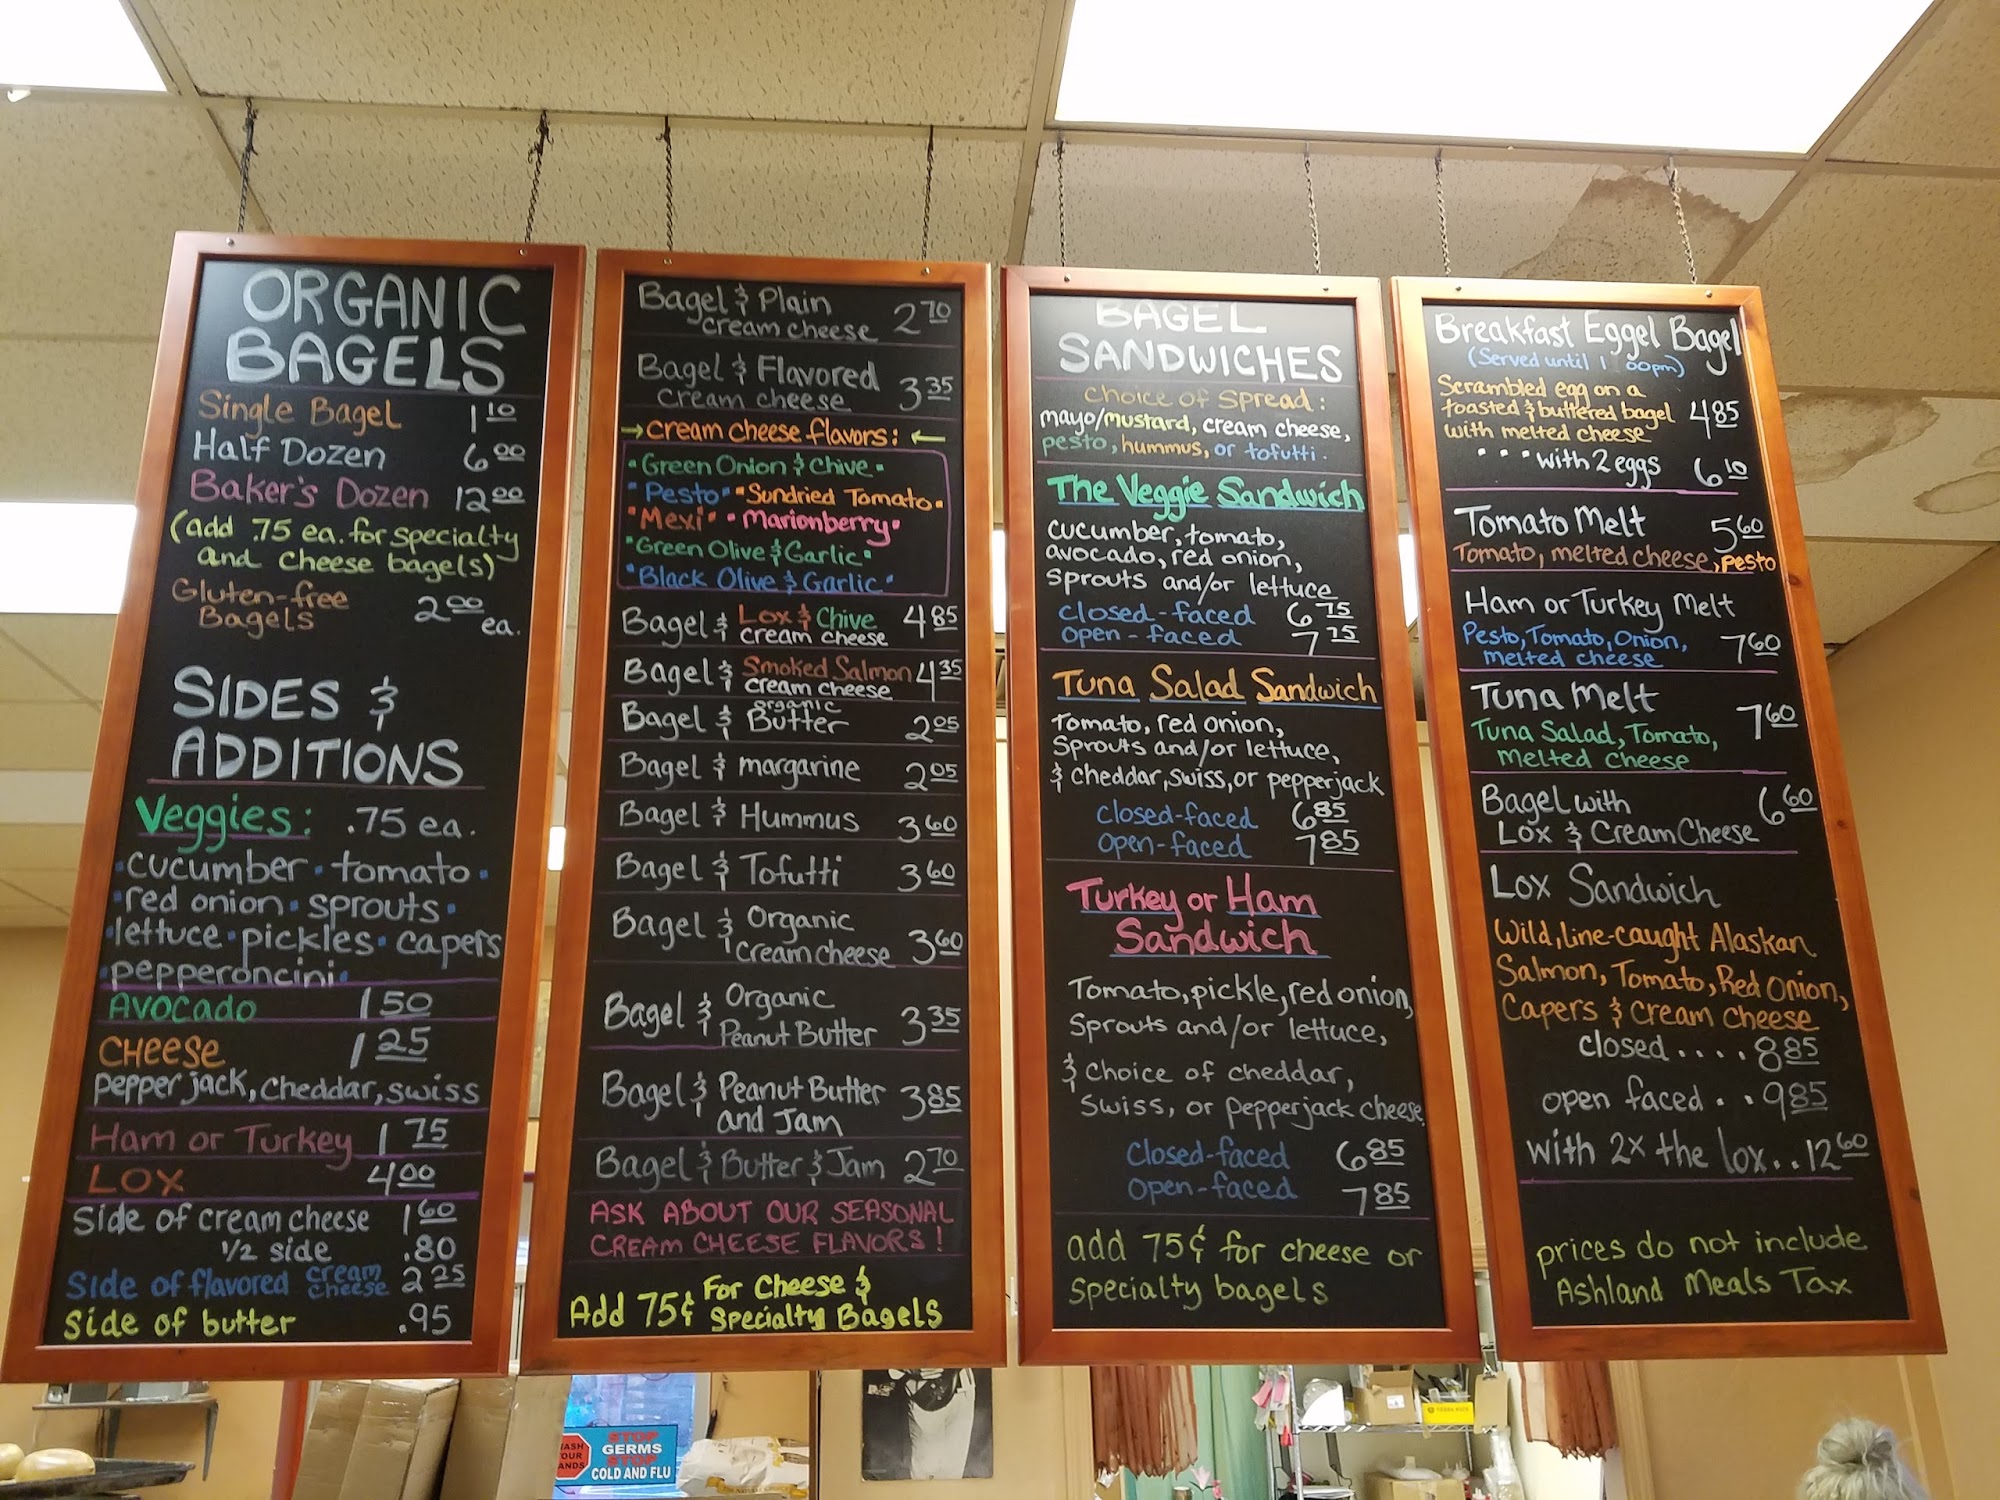 ORGANIC
BAGELS
Single Bagel 1 10
Half Dozen 6 00
Baker's Dozen 12 00
(add .75 ea. for specialty
and cheese bagels)
Gluten-free
Bagels 2 00 ea.
SIDES &
ADDITIONS
Veggies: .75 ea.
•cucumber • tomato •
•red onion • sprouts •
•lettuce • pickles • capers
•pepperoncini•
Avocado 1 50
CHEESE 1 25
pepper jack, cheddar, swiss
Ham or Turkey 1 75
LOX 4 00
Side of cream cheese 1 60
1/2 side .80
Side of flavored cream cheese 2 25
Side of butter .95
Bagel & Plain
cream cheese 2 70
Bagel & Flavored
cream cheese 3 35
→cream cheese flavors: ←
•Green Onion & Chive•
•Pesto• •Sundried Tomato•
•Mexi• •Marionberry•
•Green Olive & Garlic•
•Black Olive & Garlic•
Bagel & Lox & Chive
cream cheese 4 85
Bagel & Smoked Salmon
cream cheese 4 35
Bagel & organic Butter 2 05
Bagel & margarine 2 05
Bagel & Hummus 3 60
Bagel & Tofutti 3 60
Bagel & Organic
cream cheese 3 60
Bagel & Organic
Peanut Butter 3 35
Bagel & Peanut Butter
and Jam 3 85
Bagel & Butter & Jam 2 70
ASK ABOUT OUR SEASONAL
CREAM CHEESE FLAVORS!
Add 75¢ For Cheese &
Specialty Bagels
BAGEL
SANDWICHES
choice of spread:
mayo/mustard, cream cheese,
pesto, hummus, or tofutti.
The Veggie Sandwich
cucumber, tomato,
avocado, red onion,
sprouts and/or lettuce
closed-faced 6 75
open-faced 7 75
Tuna Salad Sandwich
tomato, red onion,
sprouts and/or lettuce,
& cheddar, swiss, or pepperjack
closed-faced 6 85
open-faced 7 85
Turkey or Ham
Sandwich
Tomato, pickle, red onion,
sprouts and/or lettuce,
& choice of cheddar,
swiss, or pepperjack cheese
closed-faced 6 85
open-faced 7 85
add 75¢ for cheese or
specialty bagels
Breakfast Eggel Bagel
(Served until 1 00pm)
Scrambled egg on a
toasted & buttered bagel 4 85
with melted cheese
...with 2 eggs 6 10
Tomato Melt 5 60
Tomato, melted cheese, pesto
Ham or Turkey Melt
Pesto, Tomato, Onion,
melted cheese 7 60
Tuna Melt 7 60
Tuna Salad, Tomato,
melted cheese
Bagel with 6 60
Lox & Cream Cheese
Lox Sandwich
Wild, line-caught Alaskan
Salmon, Tomato, Red Onion,
Capers & cream cheese
closed.... 8 85
open faced.. 9 85
with 2x the lox.. 12 60
prices do not include
Ashland Meals Tax
STOP
GERMS
STOP
COLD AND FLU